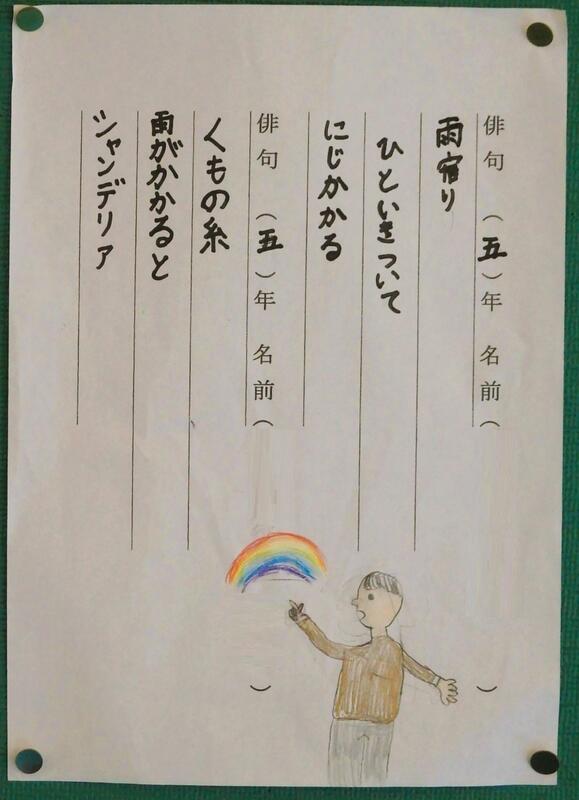 俳句 （五）年 名前（ ）
雨宿り
ひといきついて
にじかかる
俳句 （五）年 名前（ ）
くもの糸
雨がかかると
シャンデリア